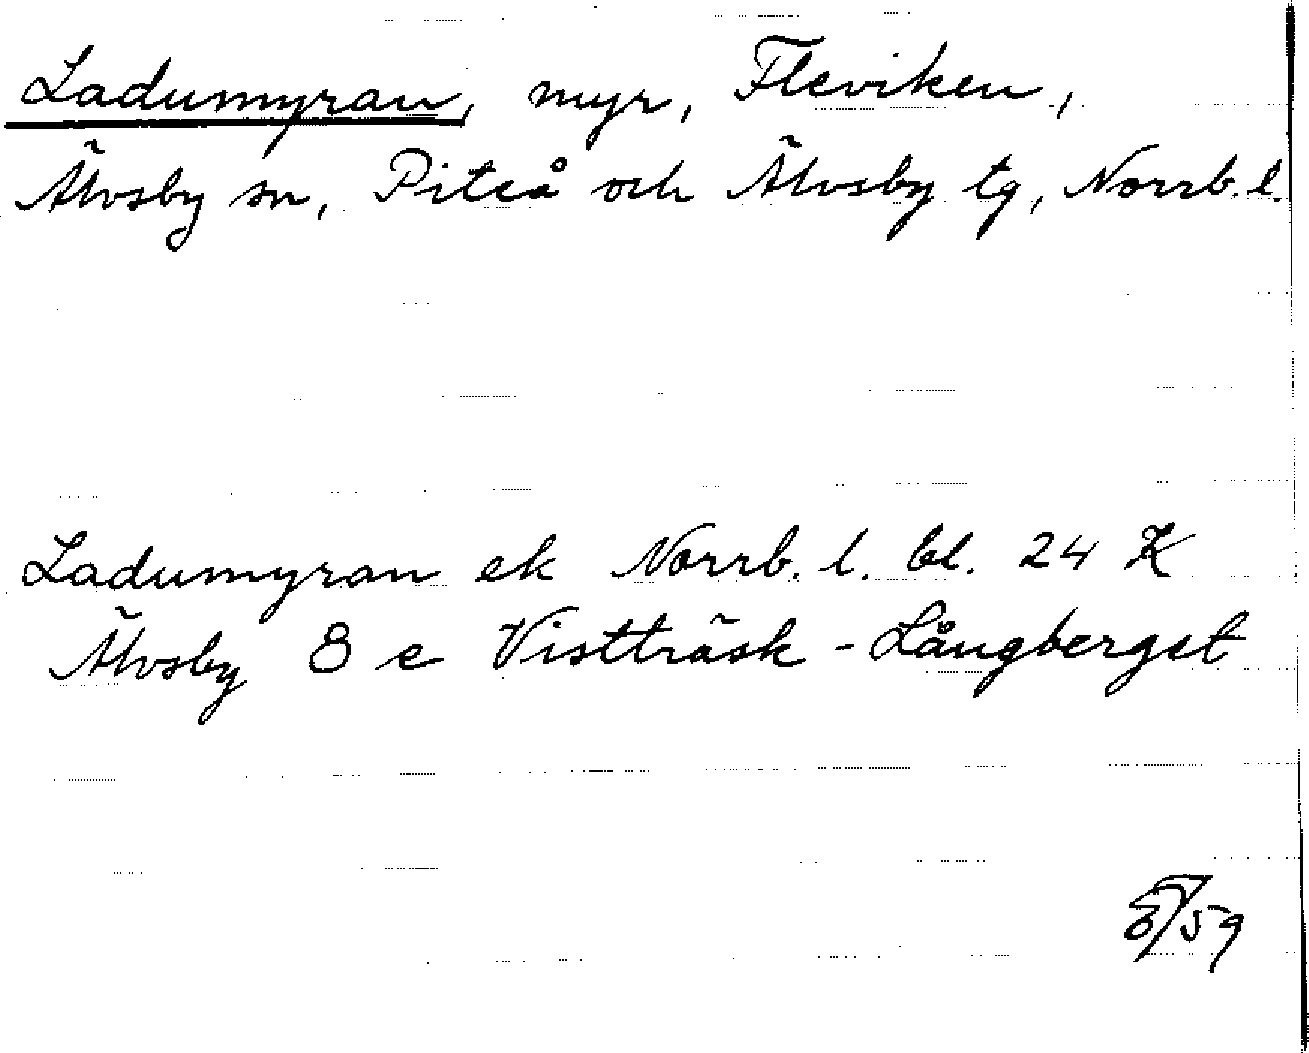 Ladumyran, myr, Fleviken,
Älvsby sn, Piteå och Älvsby tg, Norrb. l.
Ladumyran ek Norrb. l. bl. 24 K
Älvsby 8 e Vistträsk - Långberget